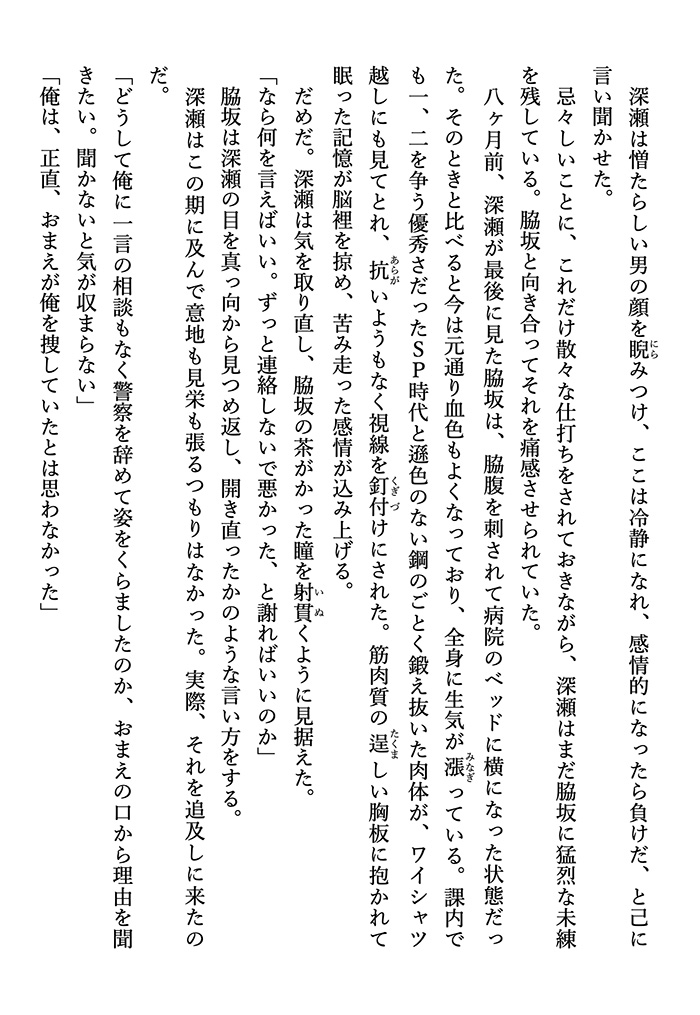 深瀬は憎たらしい男の顔を睨みつけ、ここは冷静になれ、感情的になったら負けだ、と己に
言い聞かせた。
　忌々しいことに、これだけ散々な仕打ちをされておきながら、深瀬はまだ脇坂に猛烈な未練
を残している。脇坂と向き合ってそれを痛感させられていた。
　八ヶ月前、深瀬が最後に見た脇坂は、脇腹を刺されて病院のベッドに横になった状態だっ
た。そのときと比べると今は元通り血色もよくなっており、全身に生気が漲っている。課内で
も一、二を争う優秀さだったＳＰ時代と遜色のない鋼のごとく鍛え抜いた肉体が、ワイシャツ
越しにも見てとれ、抗いようもなく視線を釘付けにされた。筋肉質の逞しい胸板に抱かれて
眠った記憶が脳裡を掠め、苦み走った感情が込み上げる。
　だめだ。深瀬は気を取り直し、脇坂の茶がかった瞳を射貫くように見据えた。
「なら何を言えばいい。ずっと連絡しないで悪かった、と謝ればいいのか」
　脇坂は深瀬の目を真っ向から見つめ返し、開き直ったかのような言い方をする。
　深瀬はこの期に及んで意地も見栄も張るつもりはなかった。実際、それを追及しに来たの
だ。
「どうして俺に一言の相談もなく警察を辞めて姿をくらましたのか、おまえの口から理由を聞
きたい。聞かないと気が収まらない」
「俺は、正直、おまえが俺を捜していたとは思わなかった」